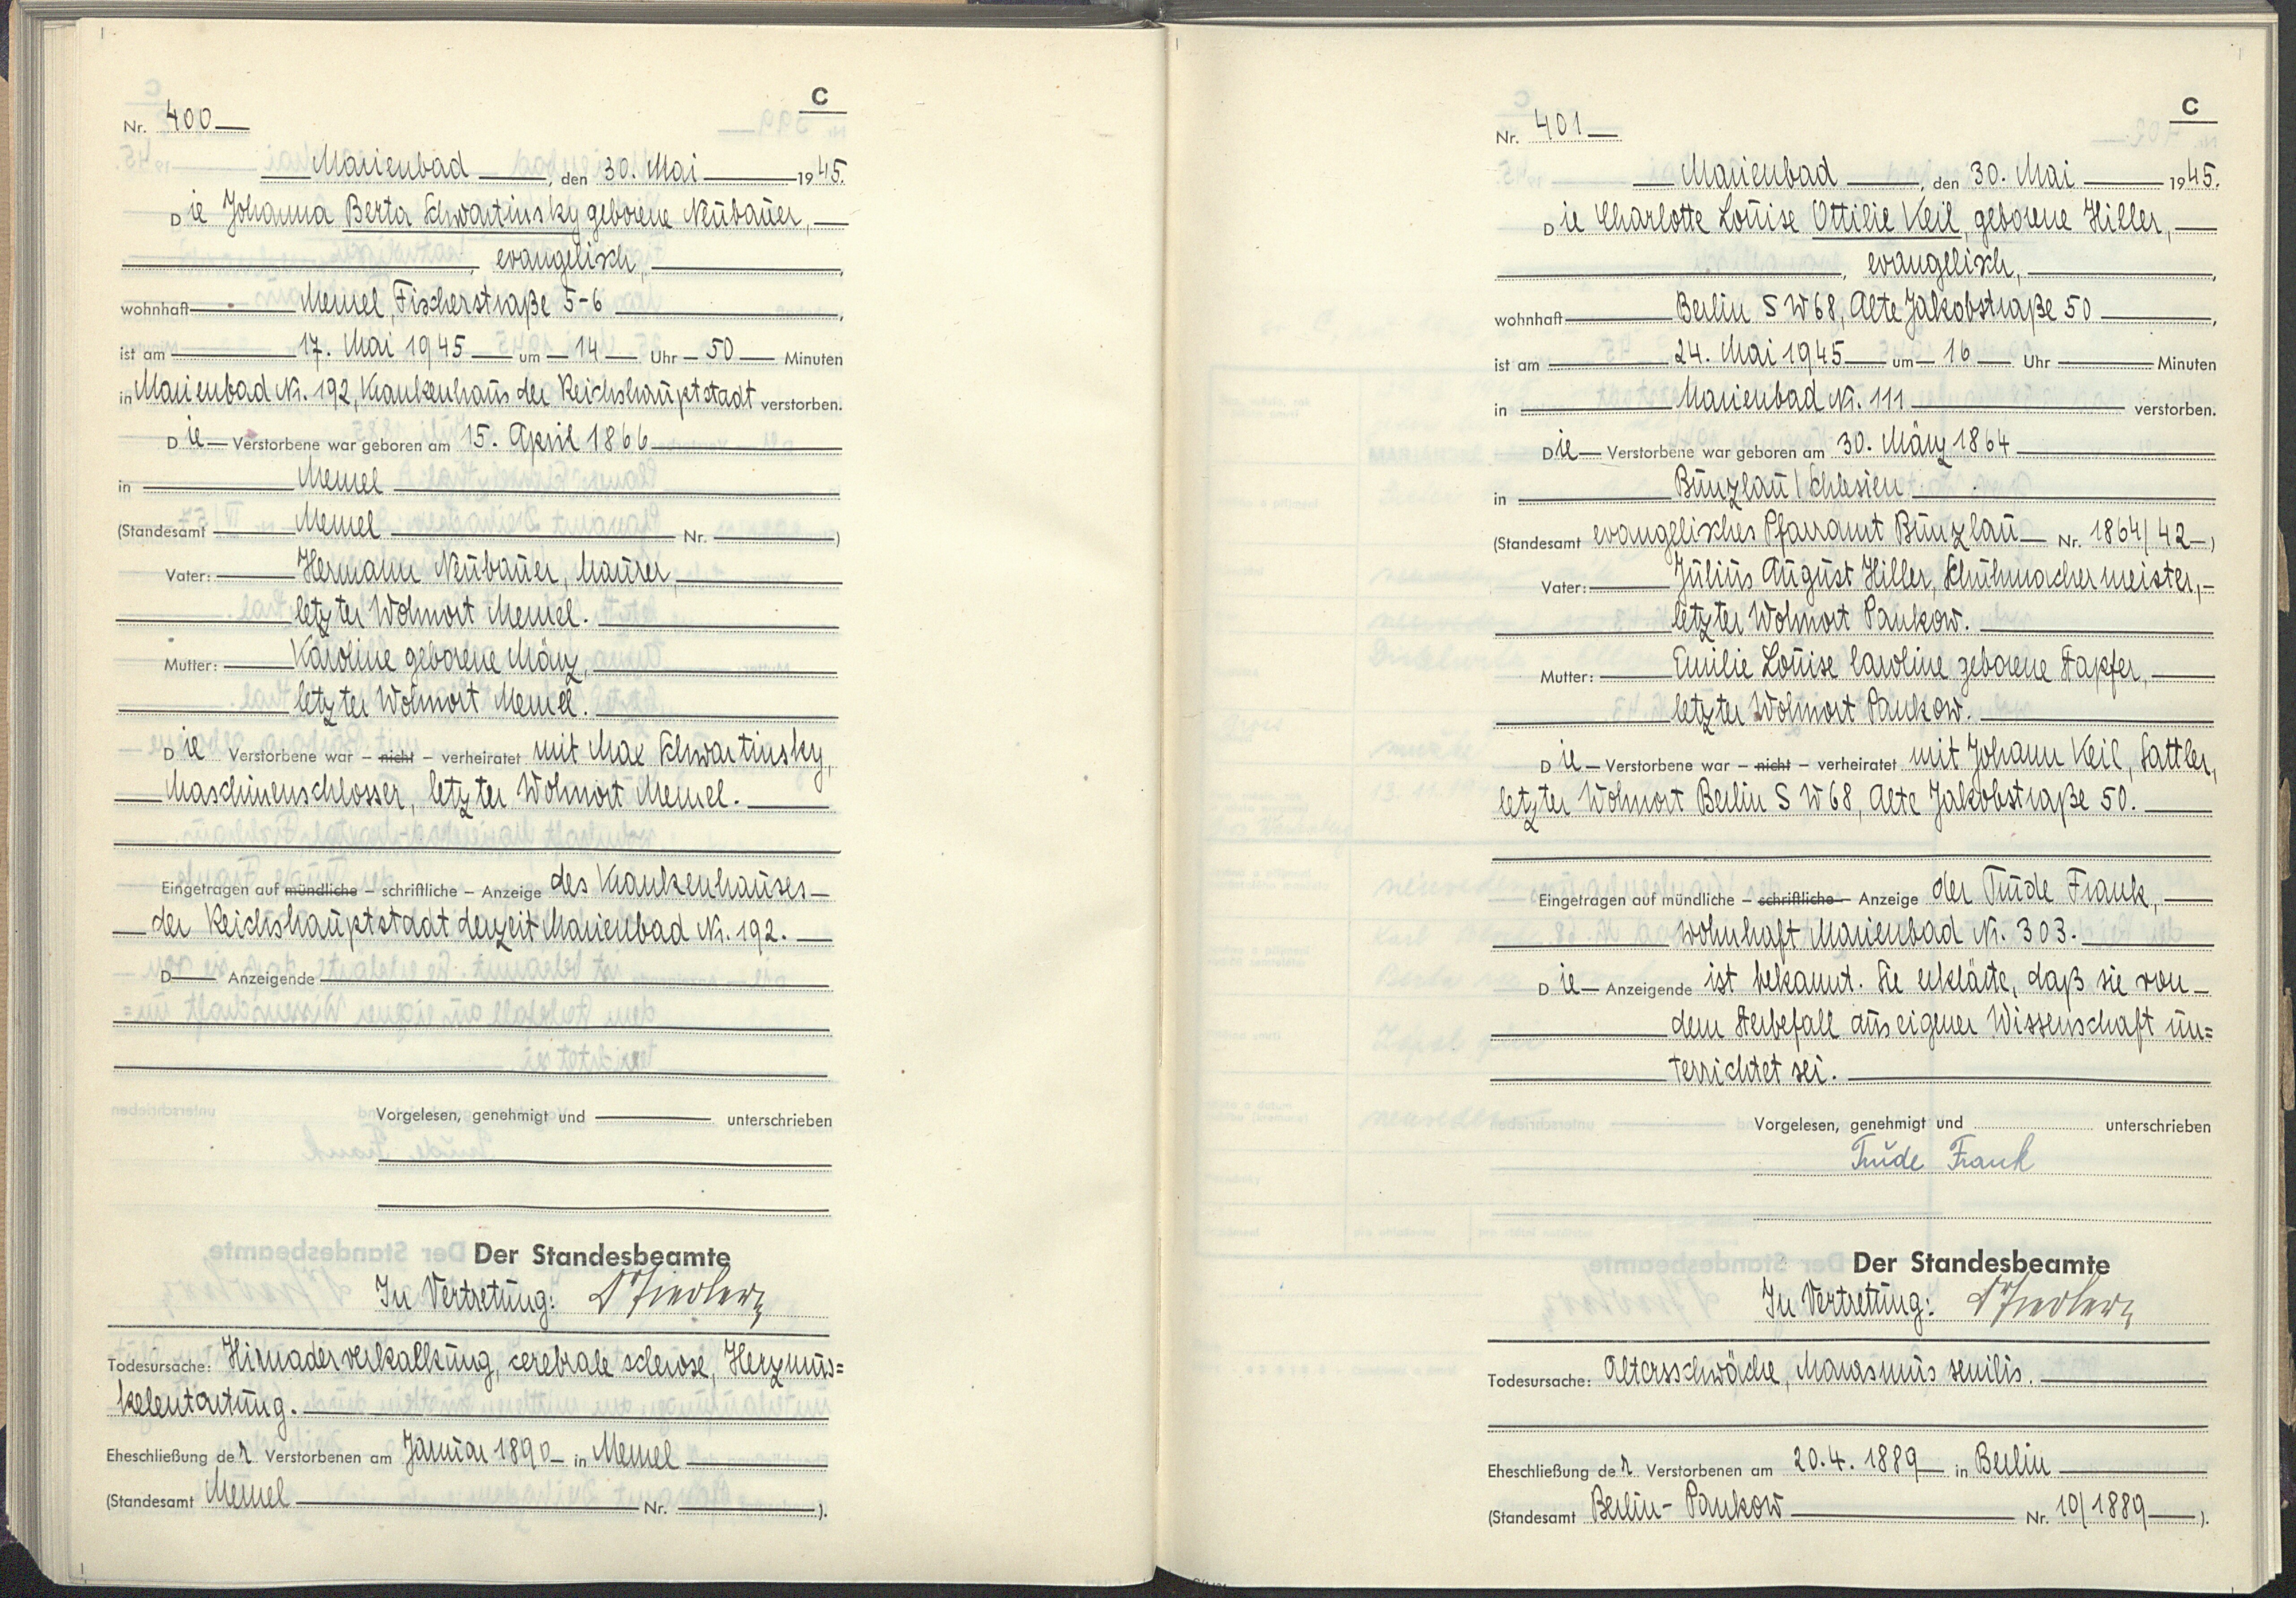 C
Nr. 400
Marienbad, den 30. Mai 1945.
Die Johanna Berta Schwartinsky geborene Neubauer,
, evangelisch,
wohnhaft Memel, Fischerstraße 5-6,
ist am 17. Mai 1945 um 14 Uhr 50 Minuten
in Marienbad Nr. 192, Krankenhaus der Reichshauptstadt verstorben.
Die Verstorbene war geboren am 15. April 1866
in Memel
(Standesamt Memel Nr. )
Vater: Hermann Neubauer, Maurer,
letzter Wohnort Memel.
Mutter: Karoline geborene März,
letzter Wohnort Memel.
Die Verstorbene war – nicht – verheiratet mit Max Schwartinsky,
Maschinenschlosser, letzter Wohnort Memel.
Eingetragen auf mündliche – schriftliche – Anzeige des Krankenhauses
der Reichshauptstadt derzeit Marienbad Nr. 192.
D Anzeigende
Vorgelesen, genehmigt und unterschrieben
Der Standesbeamte
In Vertretung:
Todesursache: Hirnaderverkalkung, cerebrale sclerose, Herzmus=
kelentartung.
Eheschließung der Verstorbenen am Januar 1890 in Memel
(Standesamt Memel Nr. ).
C
Nr. 401
Marienbad, den 30. Mai 1945.
Die Charlotte Louise Ottilie Keil, geborene Hiller,
, evangelisch,
wohnhaft Berlin SW68, Alte Jakobstraße 50,
ist am 24. Mai 1945 um 16 Uhr Minuten
in Marienbad Nr. 111 verstorben.
Die Verstorbene war geboren am 30. März 1864
in Bunzlau/Schlesien
(Standesamt evangelisches Pfarramt Bunzlau Nr. 1864/42)
Vater: Julius August Hiller, Schuhmachermeister,
letzter Wohnort Pankow.
Mutter: Emilie Louise Caroline geborene Stapfer,
letzter Wohnort Pankow.
Die Verstorbene war – nicht – verheiratet mit Johann Keil, Sattler,
letzter Wohnort Berlin SW68, Alte Jakobstraße 50.
Eingetragen auf mündliche – schriftliche – Anzeige der Trude Frank,
wohnhaft Marienbad Nr. 303.
Die Anzeigende ist bekannt. Sie erklärte, daß sie von
dem Sterbefall aus eigener Wissenschaft un=
terrichtet sei.
Vorgelesen, genehmigt und unterschrieben
Trude Frank
Der Standesbeamte
In Vertretung:
Todesursache: Altersschwäche, Marasmus senilis.
Eheschließung der Verstorbenen am 20.4.1889 in Berlin
(Standesamt Berlin-Pankow Nr. 10/1889).